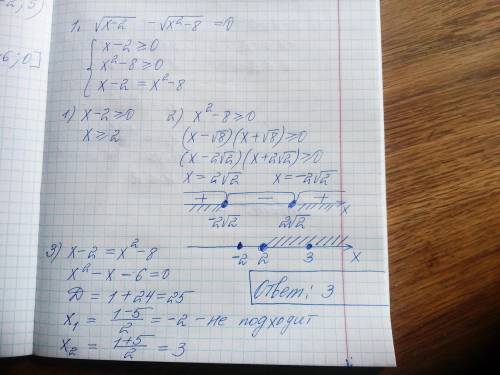 -2; 5)
-6; 0]
1. √(x-2) - √(x²-8) = 0
{ x-2 ≥ 0
x²-8 ≥ 0
x-2 = x²-8
1) x-2 ≥ 0
x ≥ 2
2) x²-8 ≥ 0
(x-√8)(x+√8) ≥ 0
(x-2√2)(x+2√2) ≥ 0
x = 2√2 x = -2√2
+ - + x
-2√2 2√2
-2 2 3 x
3) x-2 = x²-8
x²-x-6=0
D = 1+24=25
x₁ = (1-5)/2 = -2 - не подходит
x₂ = (1+5)/2 = 3
Ответ: 3